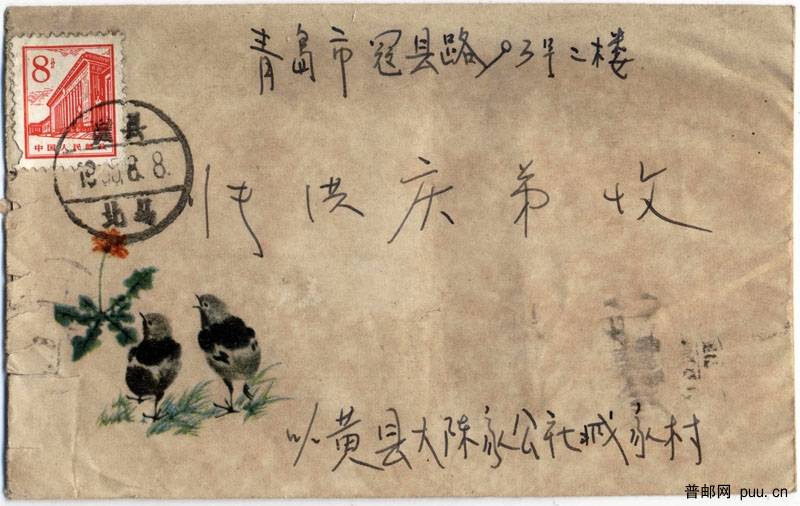 青岛市冠县路93号二楼
8分
中国人民邮政
黄县
8.8.
北马
张洪庆弟收
从黄县大陈家公社臧家村
普邮网 puu.cn